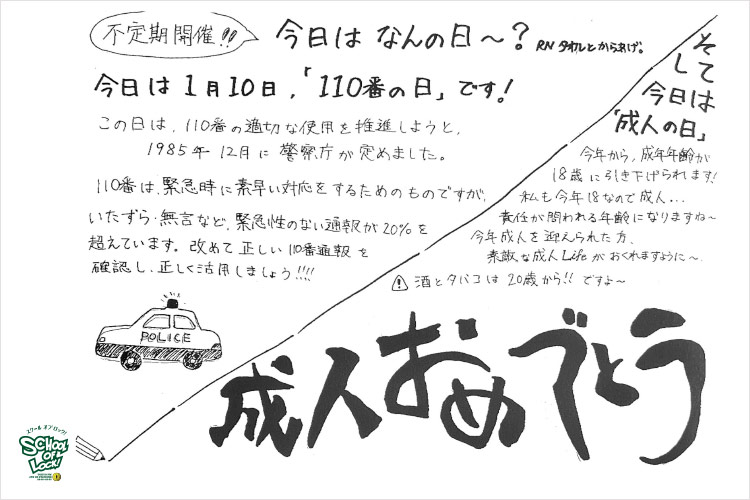 不定期開催!!
今日は なんの日〜?
RN タオルとからあげ。
今日は 1月10日,「110番の日」です!
この日は、110番の適切な使用を推進しようと、
1985年 12月に 警察庁が定めました。
110番は、緊急時に素早い対応をするためのものですが、
いたずら・無言など、緊急性のない通報が20%を
超えています。改めて 正しい110番通報を
確認し、正しく活用しましょう!!!!
そして
今日は
「成人の日」
今年から、成年年齢が
18歳に引き下げられます!
私も今年18なので成人...
責任が問われる年齢になりますね〜
今年成人を迎えられた方、
素敵な成人Lifeがおくれますように〜
酒とタバコは 20歳から!! ですよ〜
POLICE
成人おめでとう
スクール オブ ロック!
SCHOOL
OF
LOCK!